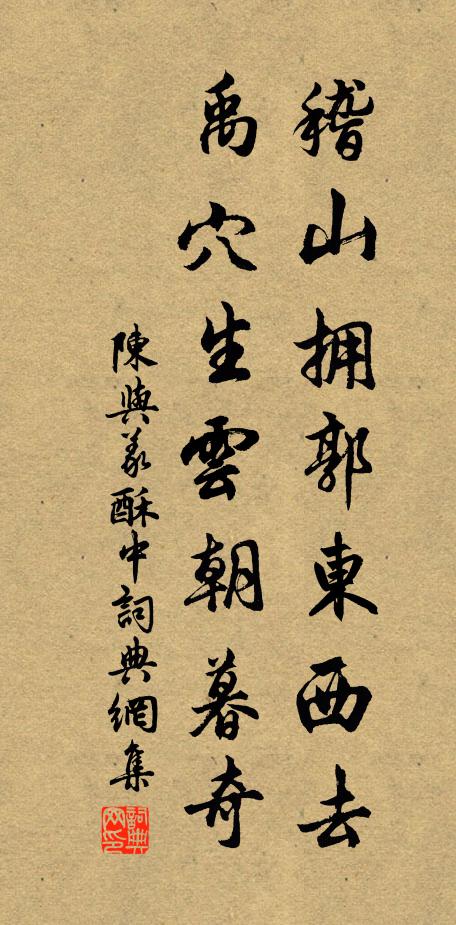 稽山拥郭東西去
禹穴生雲朝暮奇
陳與義酥中詞典網集
詞典网印